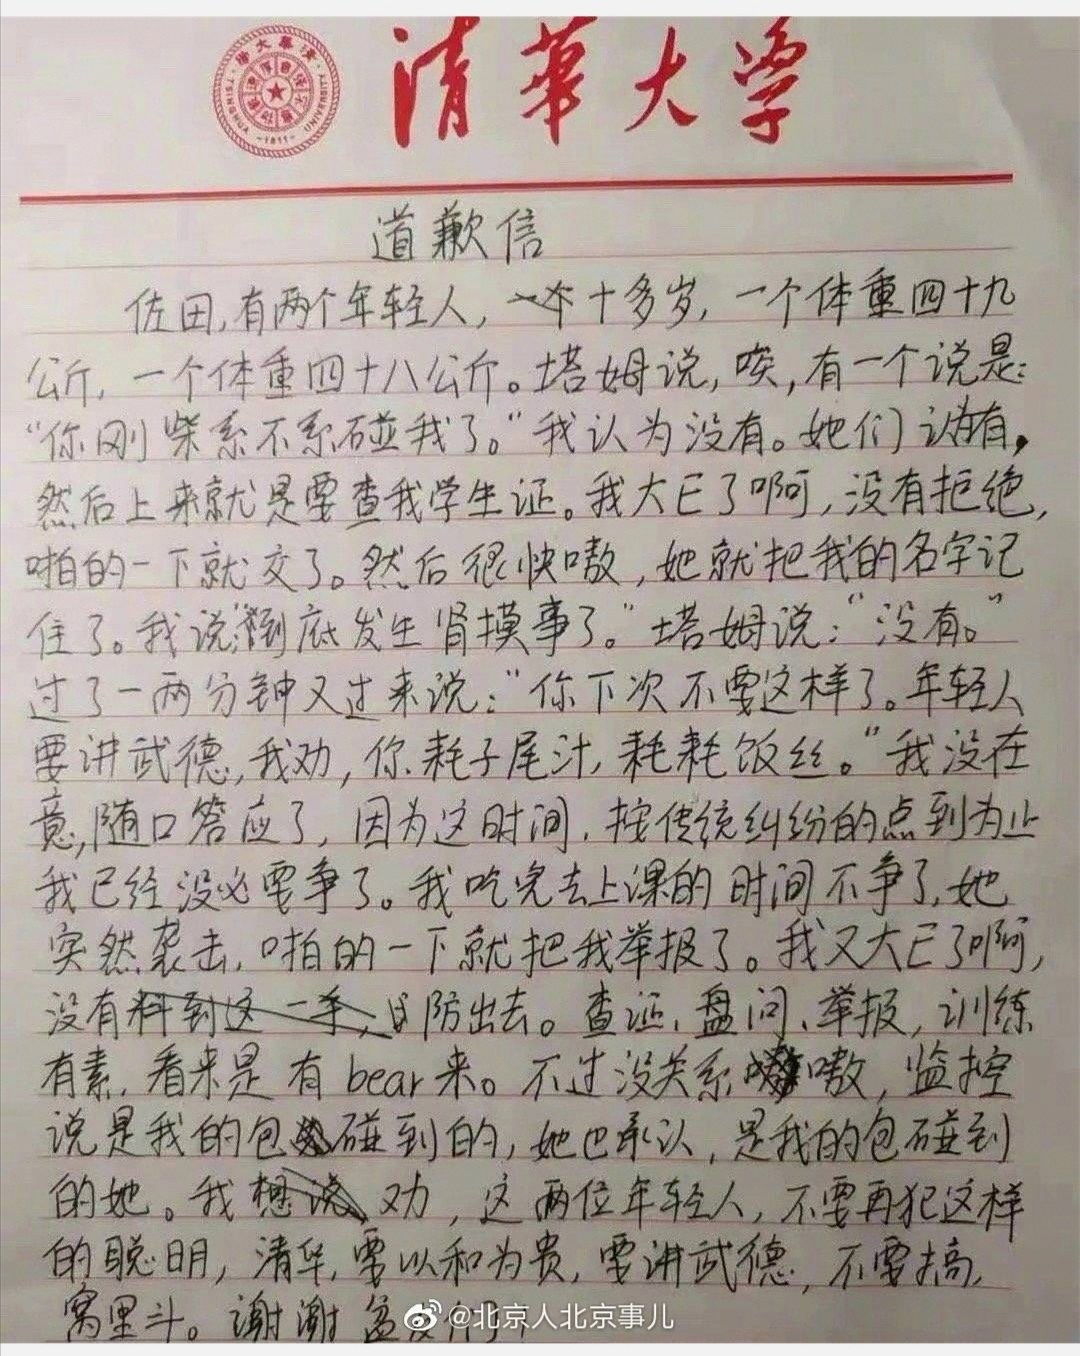 清華大学
道歉信
佐田,有两个年轻人,一个十多岁,一个体重四十九
公斤,一个体重四十八公斤。塔姆说,唉,有一个说是:
“你刚柴系不系碰我了。”我认为没有。她们认为有,
然后上来就是要查我学生证。我大E了啊,没有拒绝,
啪的一下就交了。然后很快嗷,她就把我的名字记
住了。我说:“到底发生肾摸事了。”塔姆说:“没有。”
过了一两分钟又过来说:“你下次不要这样了。年轻人
要讲武德,我劝,你耗子尾汁,耗耗饭丝。”我没在
意,随口答应了,因为这时间,按传统纠纷的点到为止
我已经没必要争了。我吃完去上课的时间不争了,她
突然袭击,啪的一下就把我举报了。我又大E了啊,
没有料到这一手,防出去。查证、盘问、举报,训练
有素,看来是有bear来。不过没关系嗷,监控
说是我的包碰到的,她也承认,是我的包碰到
的她。我想说劝,这两位年轻人,不要再犯这样
的聪明,清华,要以和为贵,要讲武德,不要搞,
窝里斗。谢谢
@北京人北京事儿